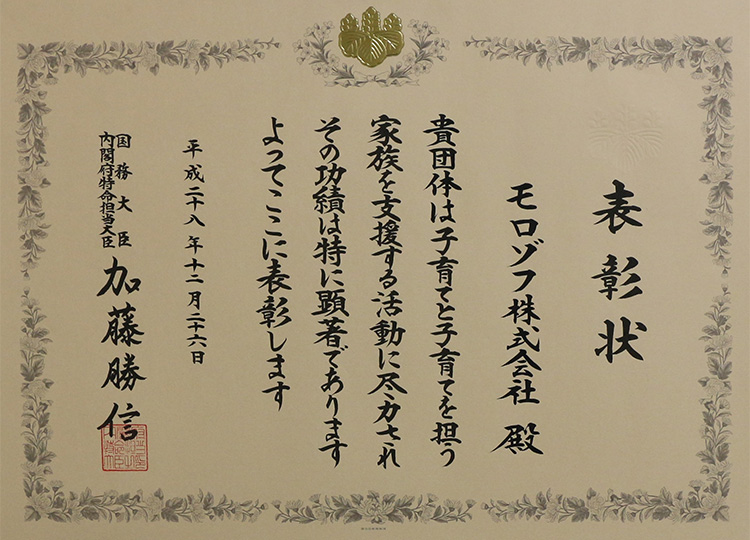 表彰状
モロゾフ株式会社 殿
貴団体は子育てと子育てを担う
家族を支援する活動に尽力され
その功績は特に顕著であります
よってここに表彰します
平成二十八年十二月二十六日
国務大臣
内閣府特命担当大臣
加藤勝信